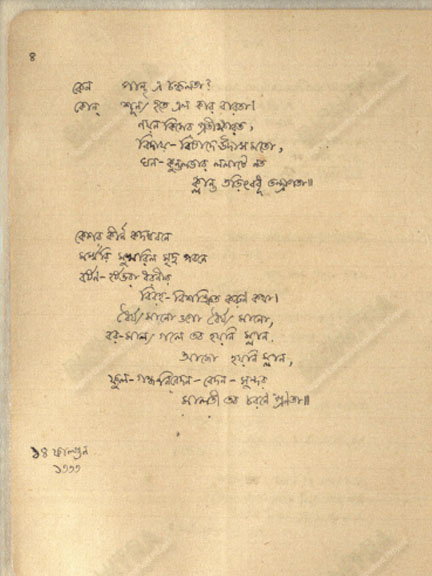 ৪
কেন পান্থ এ চঞ্চলতা?
কোন্ শূন্য হতে এল কার বারতা।
নয়ন কিসের প্রতীক্ষারত,
বিদায়-বিষাদে উদাস মতো,
ঘন-কুন্তলভার ললাটে নত
ক্লান্ত তড়িৎবধূ তন্দ্রাগতা॥
কেশর কীর্ণ কদম্ববনে
মর্ম্মরি মুখরিল মৃদু পবনে
বর্ষণ-হর্ষভরা ধরণীর
বিরহ-বিশঙ্কিত করুণ কথা।
ধৈর্য্য মানো ওগো ধৈর্য্য মানো,
বর-মাল্য গলে তব হয়নি ম্লান,
আজো হয়নি ম্লান,
ফুল-গন্ধ-নিবেদন-বেদন-সুন্দর
মালতী তব চরণে প্রণতা॥
১৪ ফাল্গুন
১৩৩৩